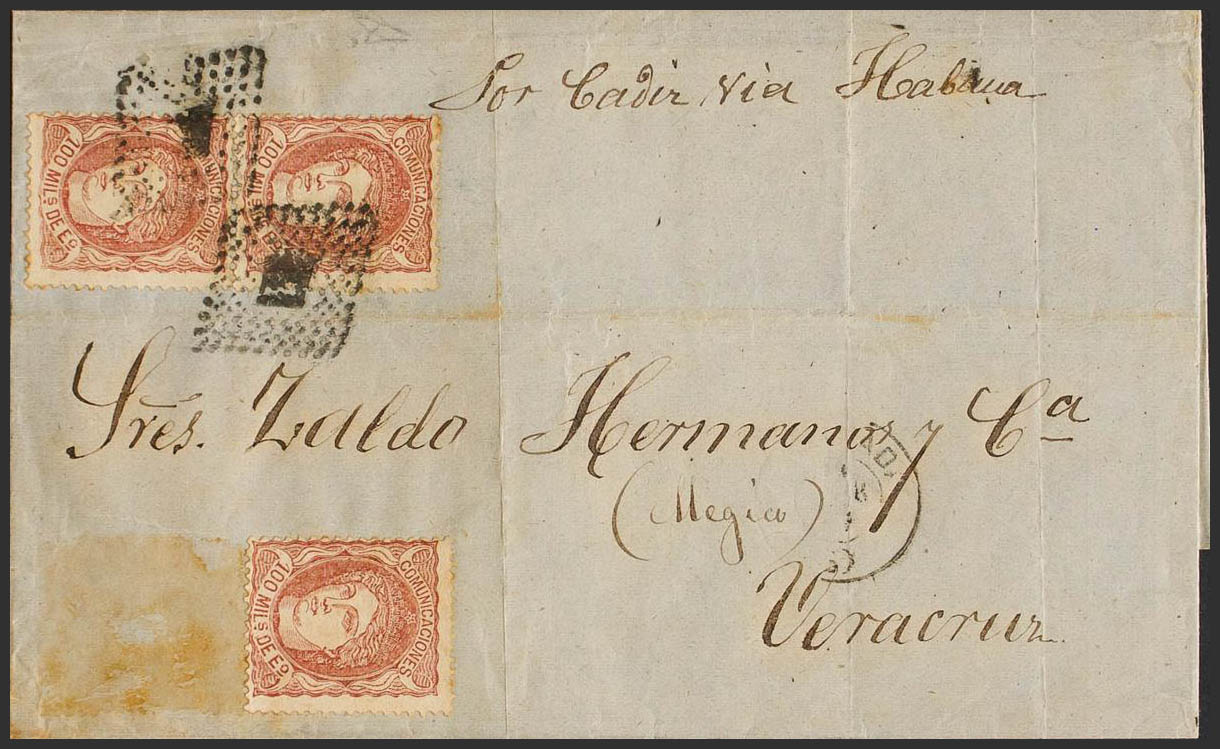 Por Cadiz via Habana
COMUNICACIONES
100 MILs DE Eo
COMUNICACIONES
100 MILs DE Eo
Sres. Zaldo Hermanos y Ca
(Megico)
Veracruz
COMUNICACIONES
100 MILs DE Eo